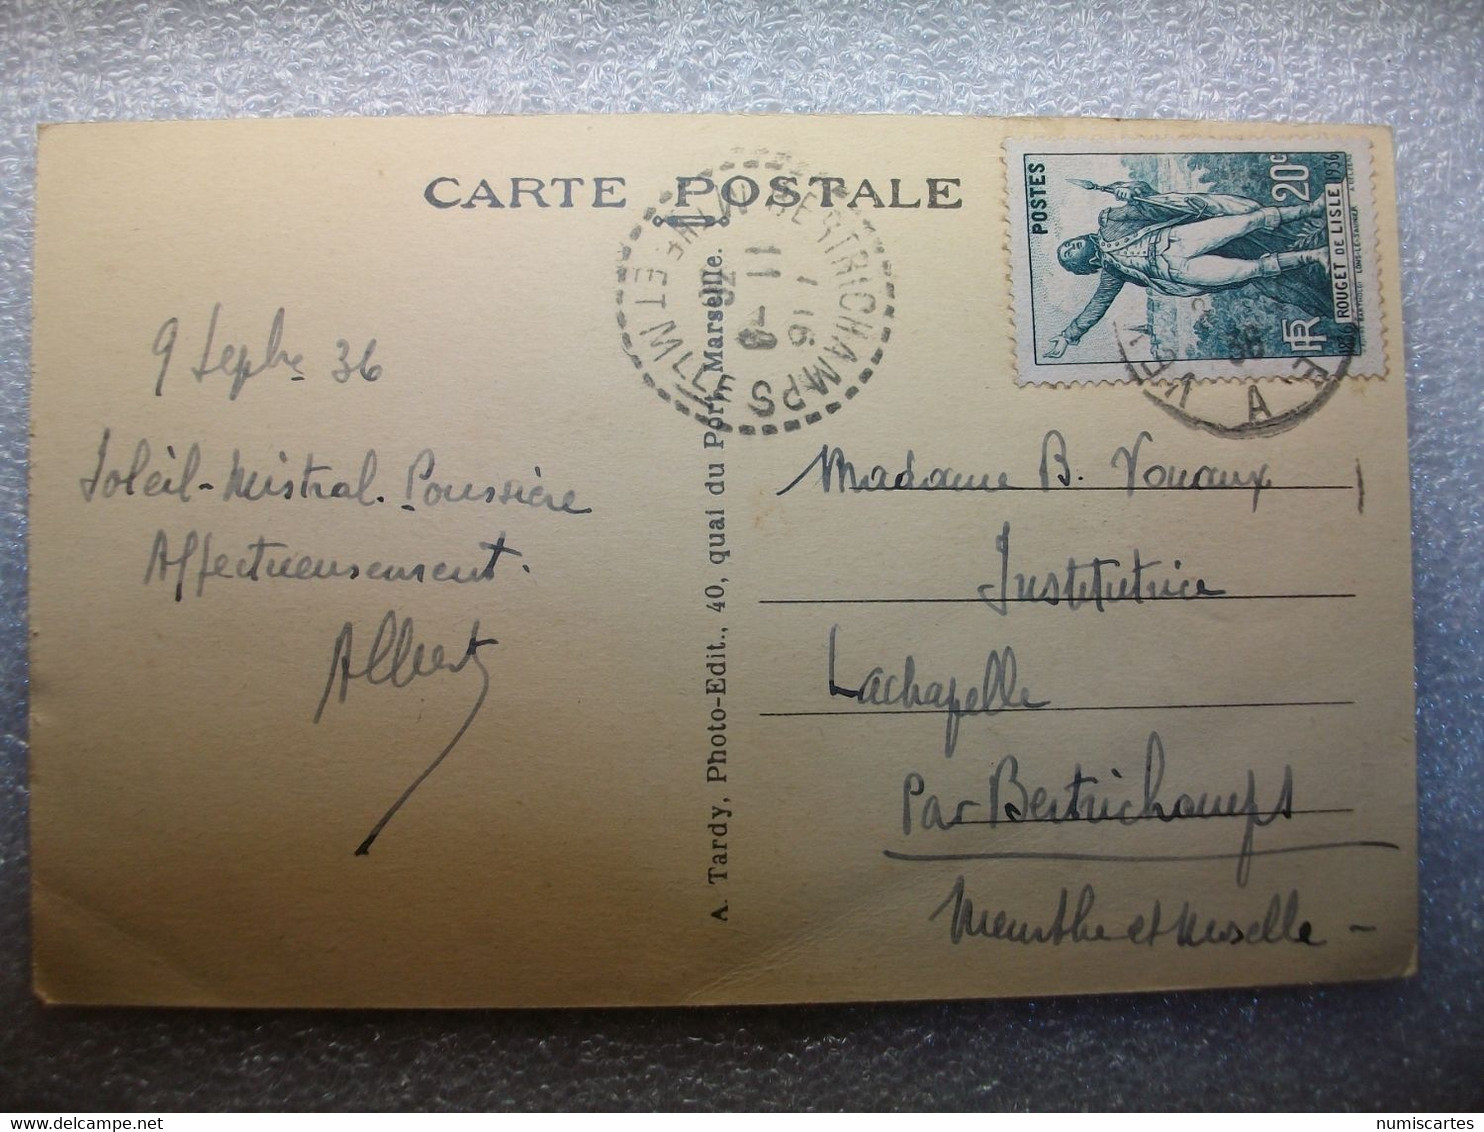 CARTE POSTALE
POSTES
20c
ROUGET DE LISLE
1936
RF
BERTRICHAMPS
MTHE ET MLLE
11 - 9
36
A
36
9 Sepbre 36
Soleil - Mistral. Poussière
Affectueusement.
Albert
A. Tardy, Photo-Edit., 40, quai du Port, Marseille.
Madame B. Vouaux
Institutrice
Lachapelle
Par Bertrichamps
Meurthe et Moselle -
numiscartes